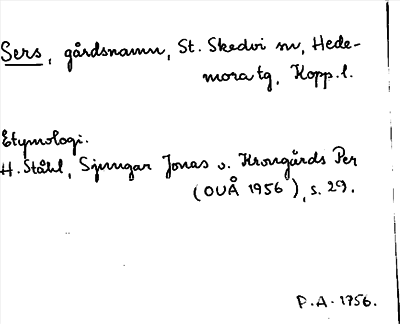 Sers, gårdsnamn, St. Skedvi sn, Hede-
mora tg, Kopp. l.
Etymologi.
H. Ståhl, Sjungar Jonas o. Krongårds Per
(OUÅ 1956), s. 29.
P.A. 1756.